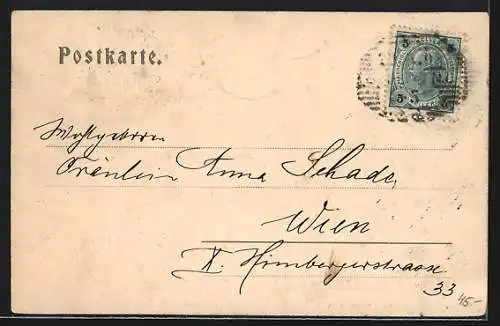 Postkarte.
5 5
5 5
Wohlgeboren
Fräulein Anna Schade,
Wien
X. Himbergerstrasse
33
45-